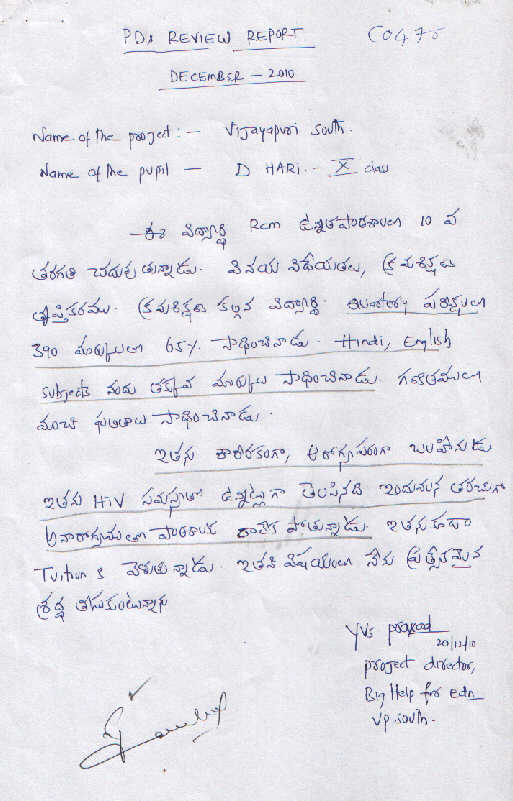 PDs REVIEW REPORT
C0475
DECEMBER - 2010
Name of the project :- Vijayapuri South.
Name of the pupil - D HARI - X class
- ఈ విద్యార్థి RCM ఉన్నతపాఠశాలలో 10 వ
తరగతి చదువుతున్నాడు. వినయ విధేయతలు, క్రమశిక్షణ
తృప్తికరము. క్రమశిక్షణ కల్గిన విద్యార్థి. పరీక్షలలో
390 మార్కులు 65% సాధించినాడు. Hindi, English
subjects నందు తక్కువ మార్కులు సాధించినాడు. గణితములో
మంచి ఫలితాలు సాధించినాడు.
ఇతను శారీరకంగా, ఆరోగ్యపరంగా బలహీనుడు
ఇతను HIV సమస్యతో ఉన్నట్లుగా తెలిసినది ఇందువలన తరచుగా
అనారోగ్యములో పాఠశాలకు రాలేక పోతున్నాడు. ఇతను కూడా
Tuition కి వెళుతున్నాడు. ఇతని విషయంలో నేను ప్రత్యేకమైన
శ్రద్ధ తీసుకుంటున్నాను
YVS prasad
20/12/10
project director,
Big Help for edn
vp. south.